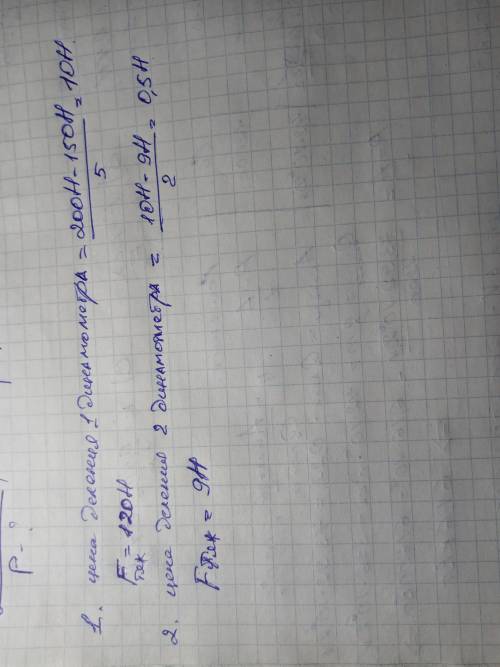 P - ?
1. цена деления 1 динамометра = 200Н - 150Н / 5 = 10Н.
Fтяж = 120Н
2. цена деления 2 динамометра = 10Н - 9Н / 2 = 0,5Н
Fтяж = 9Н